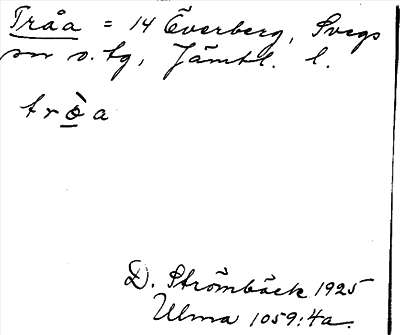 Tråa = 14 Överberg, Svegs
sn o. tg, Jämtl. l.
tròa
D. Strömbäck 1925
Ulma 1059:4a.